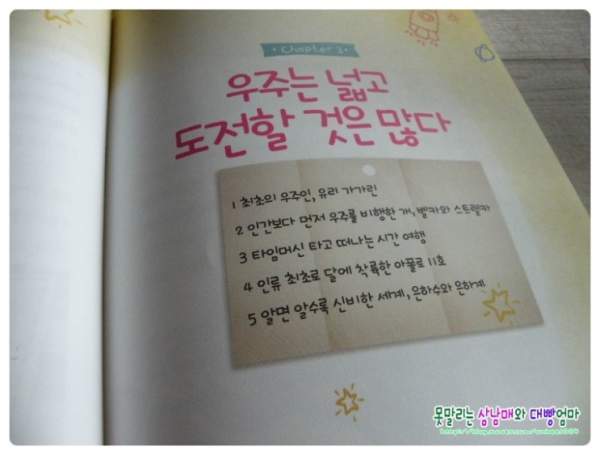 Chapter 3
우주는 넓고
도전할 것은 많다
1 최초의 우주인, 유리 가가린
2 인간보다 먼저 우주를 비행한 개, 벨카와 스트렐카
3 타임머신 타고 떠나는 시간 여행
4 인류 최초로 달에 착륙한 아폴로 11호
5 알면 알수록 신비한 세계, 은하수와 은하계
못말리는 삼남매와 대빵엄마